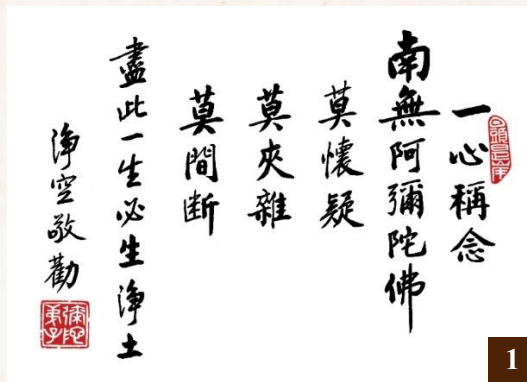 一心稱念
南無阿彌陀佛
莫懷疑
莫夾雜
莫間斷
盡此一生必生淨土
淨空敬勸
彌陀弟子
回頭是岸
1